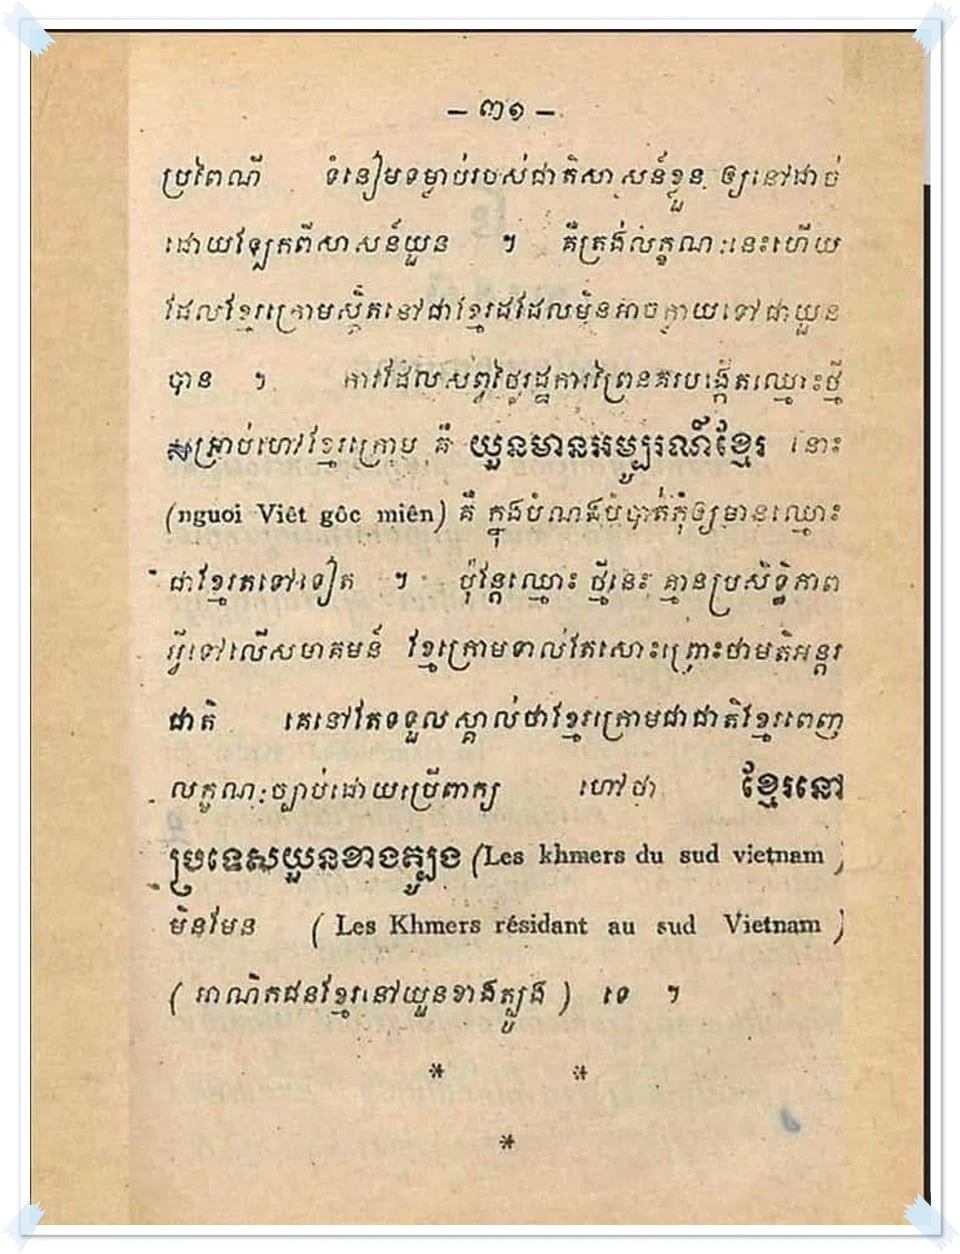 – ៣១ –
ប្រពៃណី ទំនៀមទម្លាប់របស់ជាតិសាសន៍ខ្លួន ឲ្យនៅជាប់
ដោយឡែកពីសាសន៍យួន ។ គឺត្រង់លក្ខណៈនេះហើយ
ដែលខ្មែរក្រោមស្ថិតនៅជាខ្មែរដដែលមិនអាចក្លាយទៅជាយួន
បាន ។ ការដែលសព្វថ្ងៃរដ្ឋការព្រៃនគរបង្កើតឈ្មោះថ្មី
សម្រាប់ហៅខ្មែរក្រោម គឺ យួនមានអម្បូរណ៍ខ្មែរ នោះ
(nguoi Viêt gôc miên) គឺ ក្នុងបំណងបំបាត់កុំឲ្យមានឈ្មោះ
ជាខ្មែរតទៅទៀត ។ ប៉ុន្តែឈ្មោះ ថ្មីនេះ គ្មានប្រសិទ្ធិភាព
អ្វីទៅលើសមាគមន៍ ខ្មែរក្រោមទាល់តែសោះព្រោះថាមតិអន្តរ
ជាតិ គេនៅតែទទួលស្គាល់ថាខ្មែរក្រោមជាជាតិខ្មែរពេញ
លក្ខណៈច្បាប់ដោយប្រើពាក្យ ហៅថា ខ្មែរនៅ
ប្រទេសយួនខាងត្បូង (Les khmers du sud vietnam )
មិនមែន ( Les Khmers résidant au sud Vietnam )
( អាណិកជនខ្មែរនៅយួនខាងត្បូង ) ទេ ។
* *
*